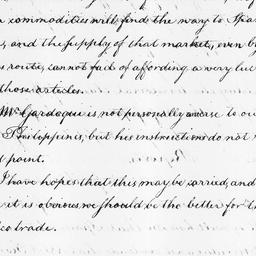 commodities will find the way to Spa
, and the supply of that market, even b
route, cannot fail of affording a very luc
those articles.
Mr Gardoqui is not personally averse to ou
Philippines, but his instructions do not
point.
I have hopes that this may be carried, and
it is obvious we should be the better for th
trade.